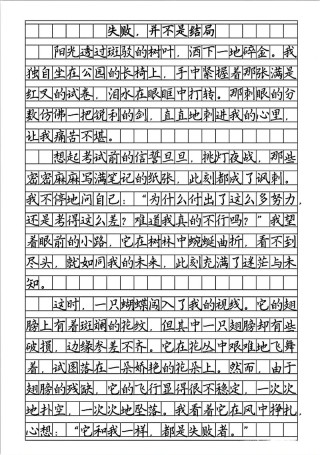 失败，并不是结局
阳光透过斑驳的树叶，洒下一地碎金。我
独自坐在公园的长椅上，手中紧握着那张满是
红叉的试卷，泪水在眼眶中打转。那刺眼的分
数仿佛一把锐利的剑，直直地刺进我的心里，
让我痛苦不堪。
想起考试前的信誓旦旦，挑灯夜战，那些
密密麻麻写满笔记的纸张，此刻都成了讽刺。
我不停地问自己：“为什么付出了这么多努力，
还是考得这么差？难道我真的不行吗？”我望
着眼前的小路，它在树林中蜿蜒曲折，看不到
尽头，就如同我的未来，此刻充满了迷茫与未
知。
这时，一只蝴蝶闯入了我的视线。它的翅
膀上有着斑斓的花纹，但其中一只翅膀却有些
破损，边缘参差不齐。它在花丛中艰难地飞舞
着，试图落在一朵娇艳的花朵上。然而，由于
翅膀的残缺，它的飞行显得很不稳定，一次次
地扑空，一次次地坠落。我看着它在风中挣扎，
心想：“它和我一样，都是失败者。”